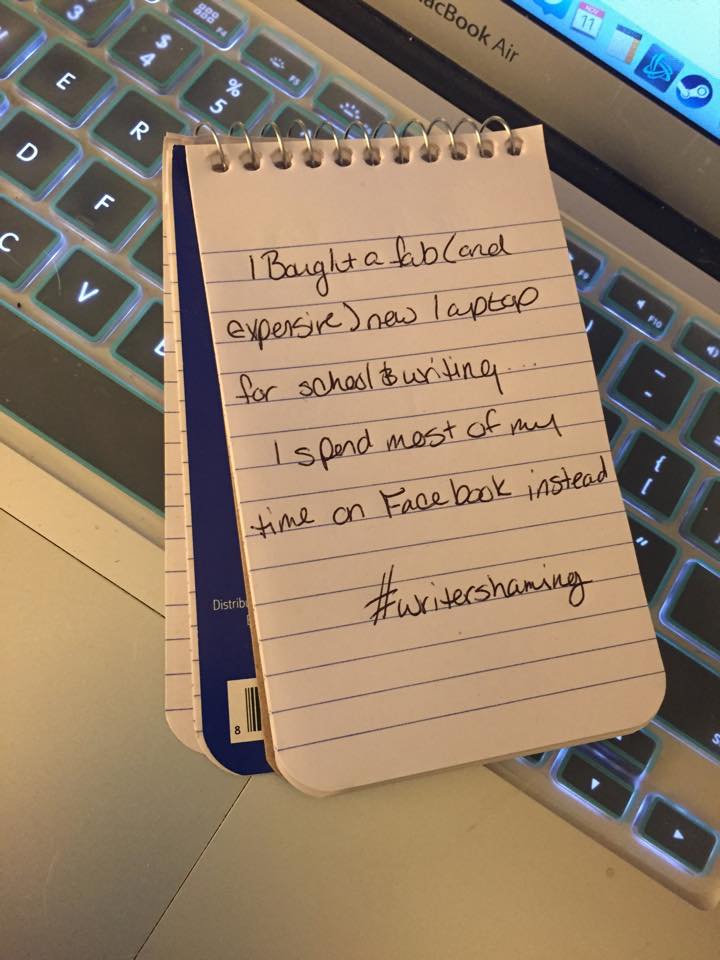 MacBook Air
NOV
11
$
4
%
5
3
F4
F5
E
R
D
F
C
V
F10
{
[
"
-
I Bought a fab (and
expensive) new laptop
for school & writing...
I spend most of my
time on Facebook instead
#writershaming
Distrib
8